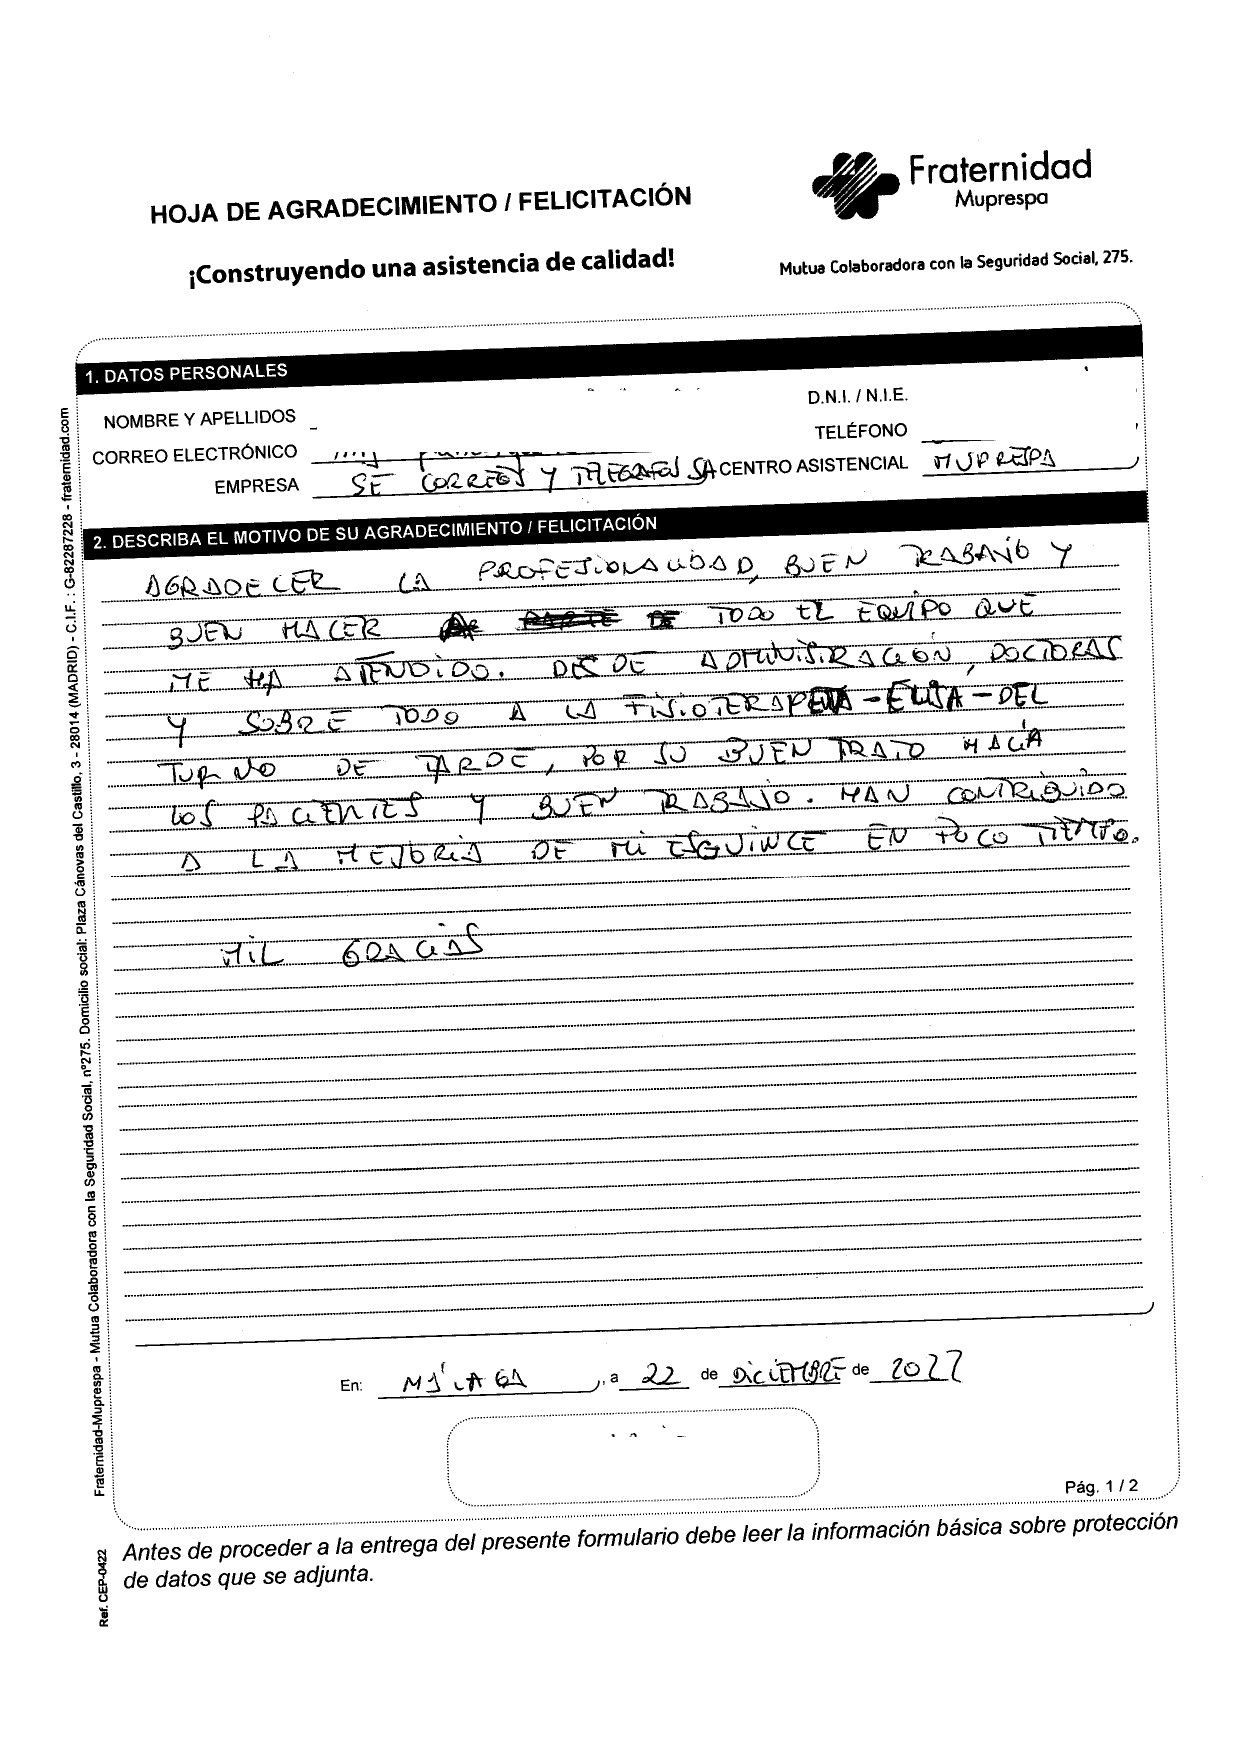 Fraternidad
Muprespa
HOJA DE AGRADECIMIENTO / FELICITACIÓN
¡Construyendo una asistencia de calidad!
Mutua Colaboradora con la Seguridad Social, 275.
1. DATOS PERSONALES
NOMBRE Y APELLIDOS
D.N.I. / N.I.E.
CORREO ELECTRÓNICO
TELÉFONO
EMPRESA SE CORREOS Y TELEGRAFOS SA CENTRO ASISTENCIAL MUPRESPA
2. DESCRIBA EL MOTIVO DE SU AGRADECIMIENTO / FELICITACIÓN
AGRADECER LA PROFESIONALIDAD, BUEN TRABAJO Y
BUEN HACER DE TODO EL EQUIPO QUE
ME HA ATENDIDO. DESDE ADMINISTRACIÓN, DOCTORAS
Y SOBRE TODO A LA FISIOTERAPEUTA - ELISA - DEL
TURNO DE TARDE, POR SU BUEN TRATO HACIA
LOS PACIENTES Y BUEN TRABAJO. HAN CONTRIBUIDO
A LA MEJORIA DE MI ESGUINCE EN POCO TIEMPO.
MIL GRACIAS
En: MÁLAGA, a 22 de DICIEMBRE de 2022
Pág. 1 / 2
Antes de proceder a la entrega del presente formulario debe leer la información básica sobre protección
de datos que se adjunta.
Fraternidad-Muprespa - Mutua Colaboradora con la Seguridad Social, nº275. Domicilio social: Plaza Cánovas del Castillo, 3 - 28014 (MADRID) - C.I.F. : G-82287228 - fraternidad.com
Ref. CEP-0422